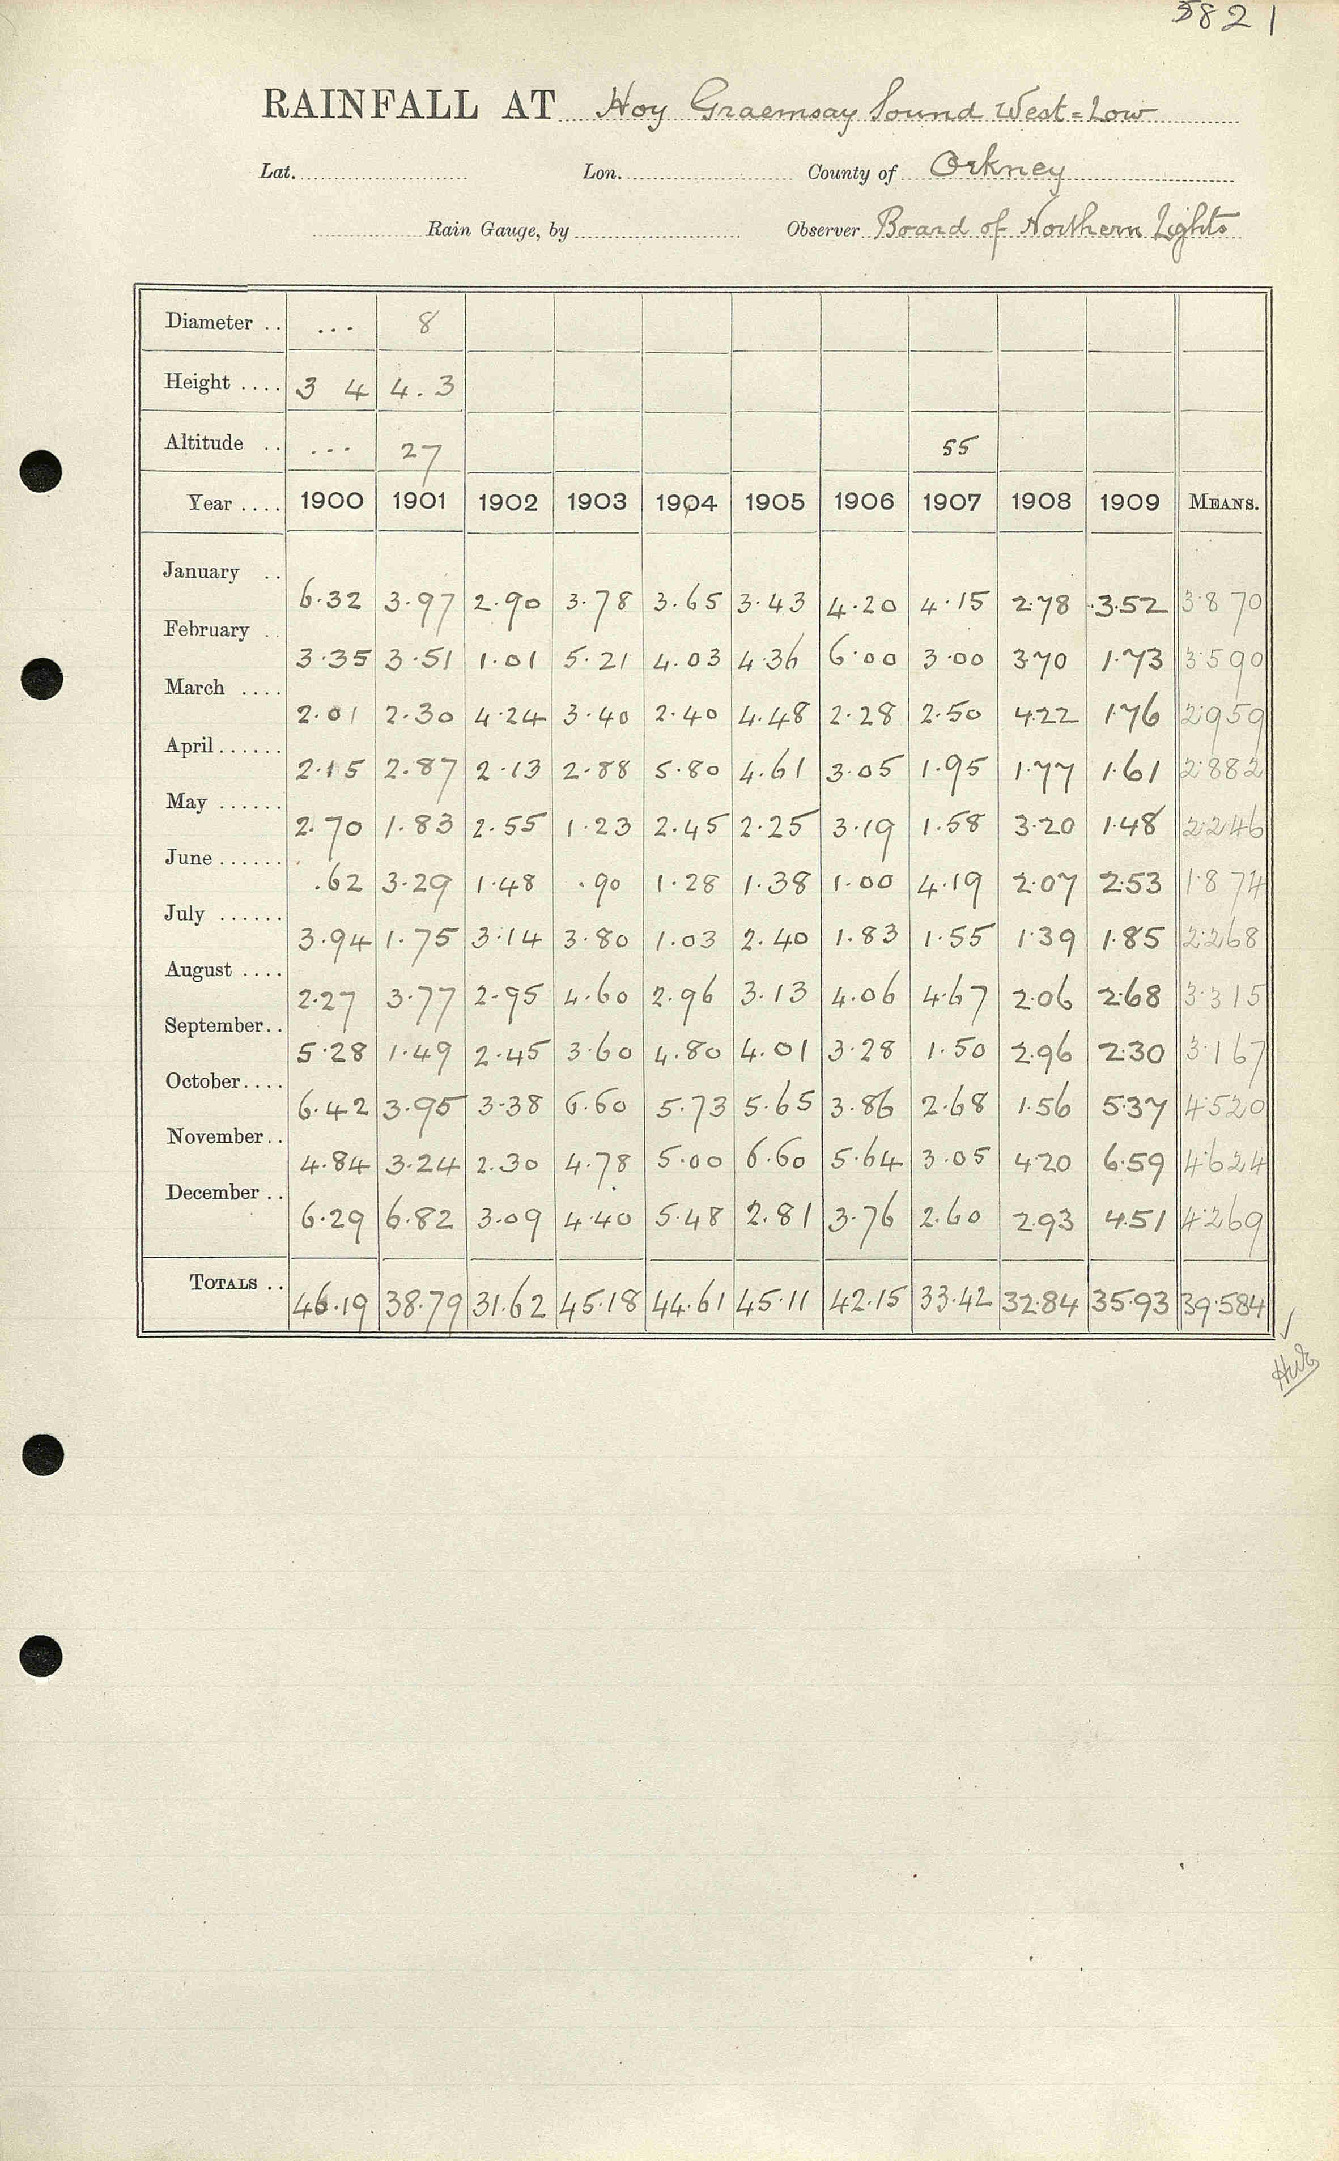 5821
RAINFALL AT Hoy Graemsay Sound West = Low
Lat. Lon. County of Orkney
Rain Gauge, by Observer Board of Northern Lights
Diameter .. ... 8
Height .... 3 4 4.3
Altitude .. ... 27 55
Year .... 1900 1901 1902 1903 1904 1905 1906 1907 1908 1909 MEANS.
January .. 6.32 3.97 2.90 3.78 3.65 3.43 4.20 4.15 2.78 3.52 3.870
February .. 3.35 3.51 1.01 5.21 4.03 4.36 6.00 3.00 3.70 1.73 3.590
March .... 2.01 2.30 4.24 3.40 2.40 4.48 2.28 2.50 4.22 1.76 2.959
April ...... 2.15 2.87 2.13 2.88 5.80 4.61 3.05 1.95 1.77 1.61 2.882
May ...... 2.70 1.83 2.55 1.23 2.45 2.25 3.19 1.58 3.20 1.48 2.246
June ...... .62 3.29 1.48 .90 1.28 1.38 1.00 4.19 2.07 2.53 1.874
July ...... 3.94 1.75 3.14 3.80 1.03 2.40 1.83 1.55 1.39 1.85 2.268
August .... 2.27 3.77 2.95 4.60 2.96 3.13 4.06 4.67 2.06 2.68 3.315
September.. 5.28 1.49 2.45 3.60 4.80 4.01 3.28 1.50 2.96 2.30 3.167
October.... 6.42 3.95 3.38 6.60 5.73 5.65 3.86 2.68 1.56 5.37 4.520
November.. 4.84 3.24 2.30 4.78 5.00 6.60 5.64 3.05 4.20 6.59 4.624
December .. 6.29 6.82 3.09 4.40 5.48 2.81 3.76 2.60 2.93 4.51 4.269
TOTALS .. 46.19 38.79 31.62 45.18 44.61 45.11 42.15 33.42 32.84 35.93 39.584